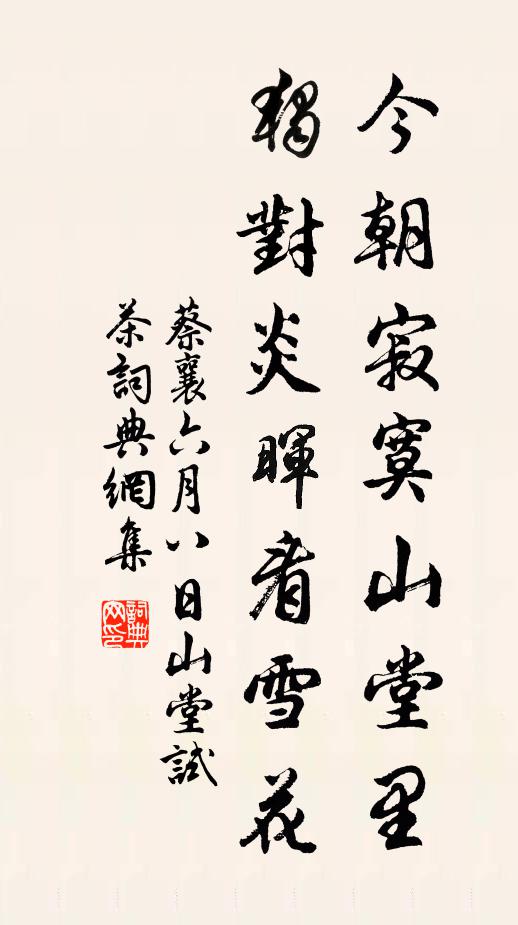 今朝寂寞山堂里
獨對炎暉看雪花
蔡襄六月八日山堂試
茶詞典網集
詞典
网印